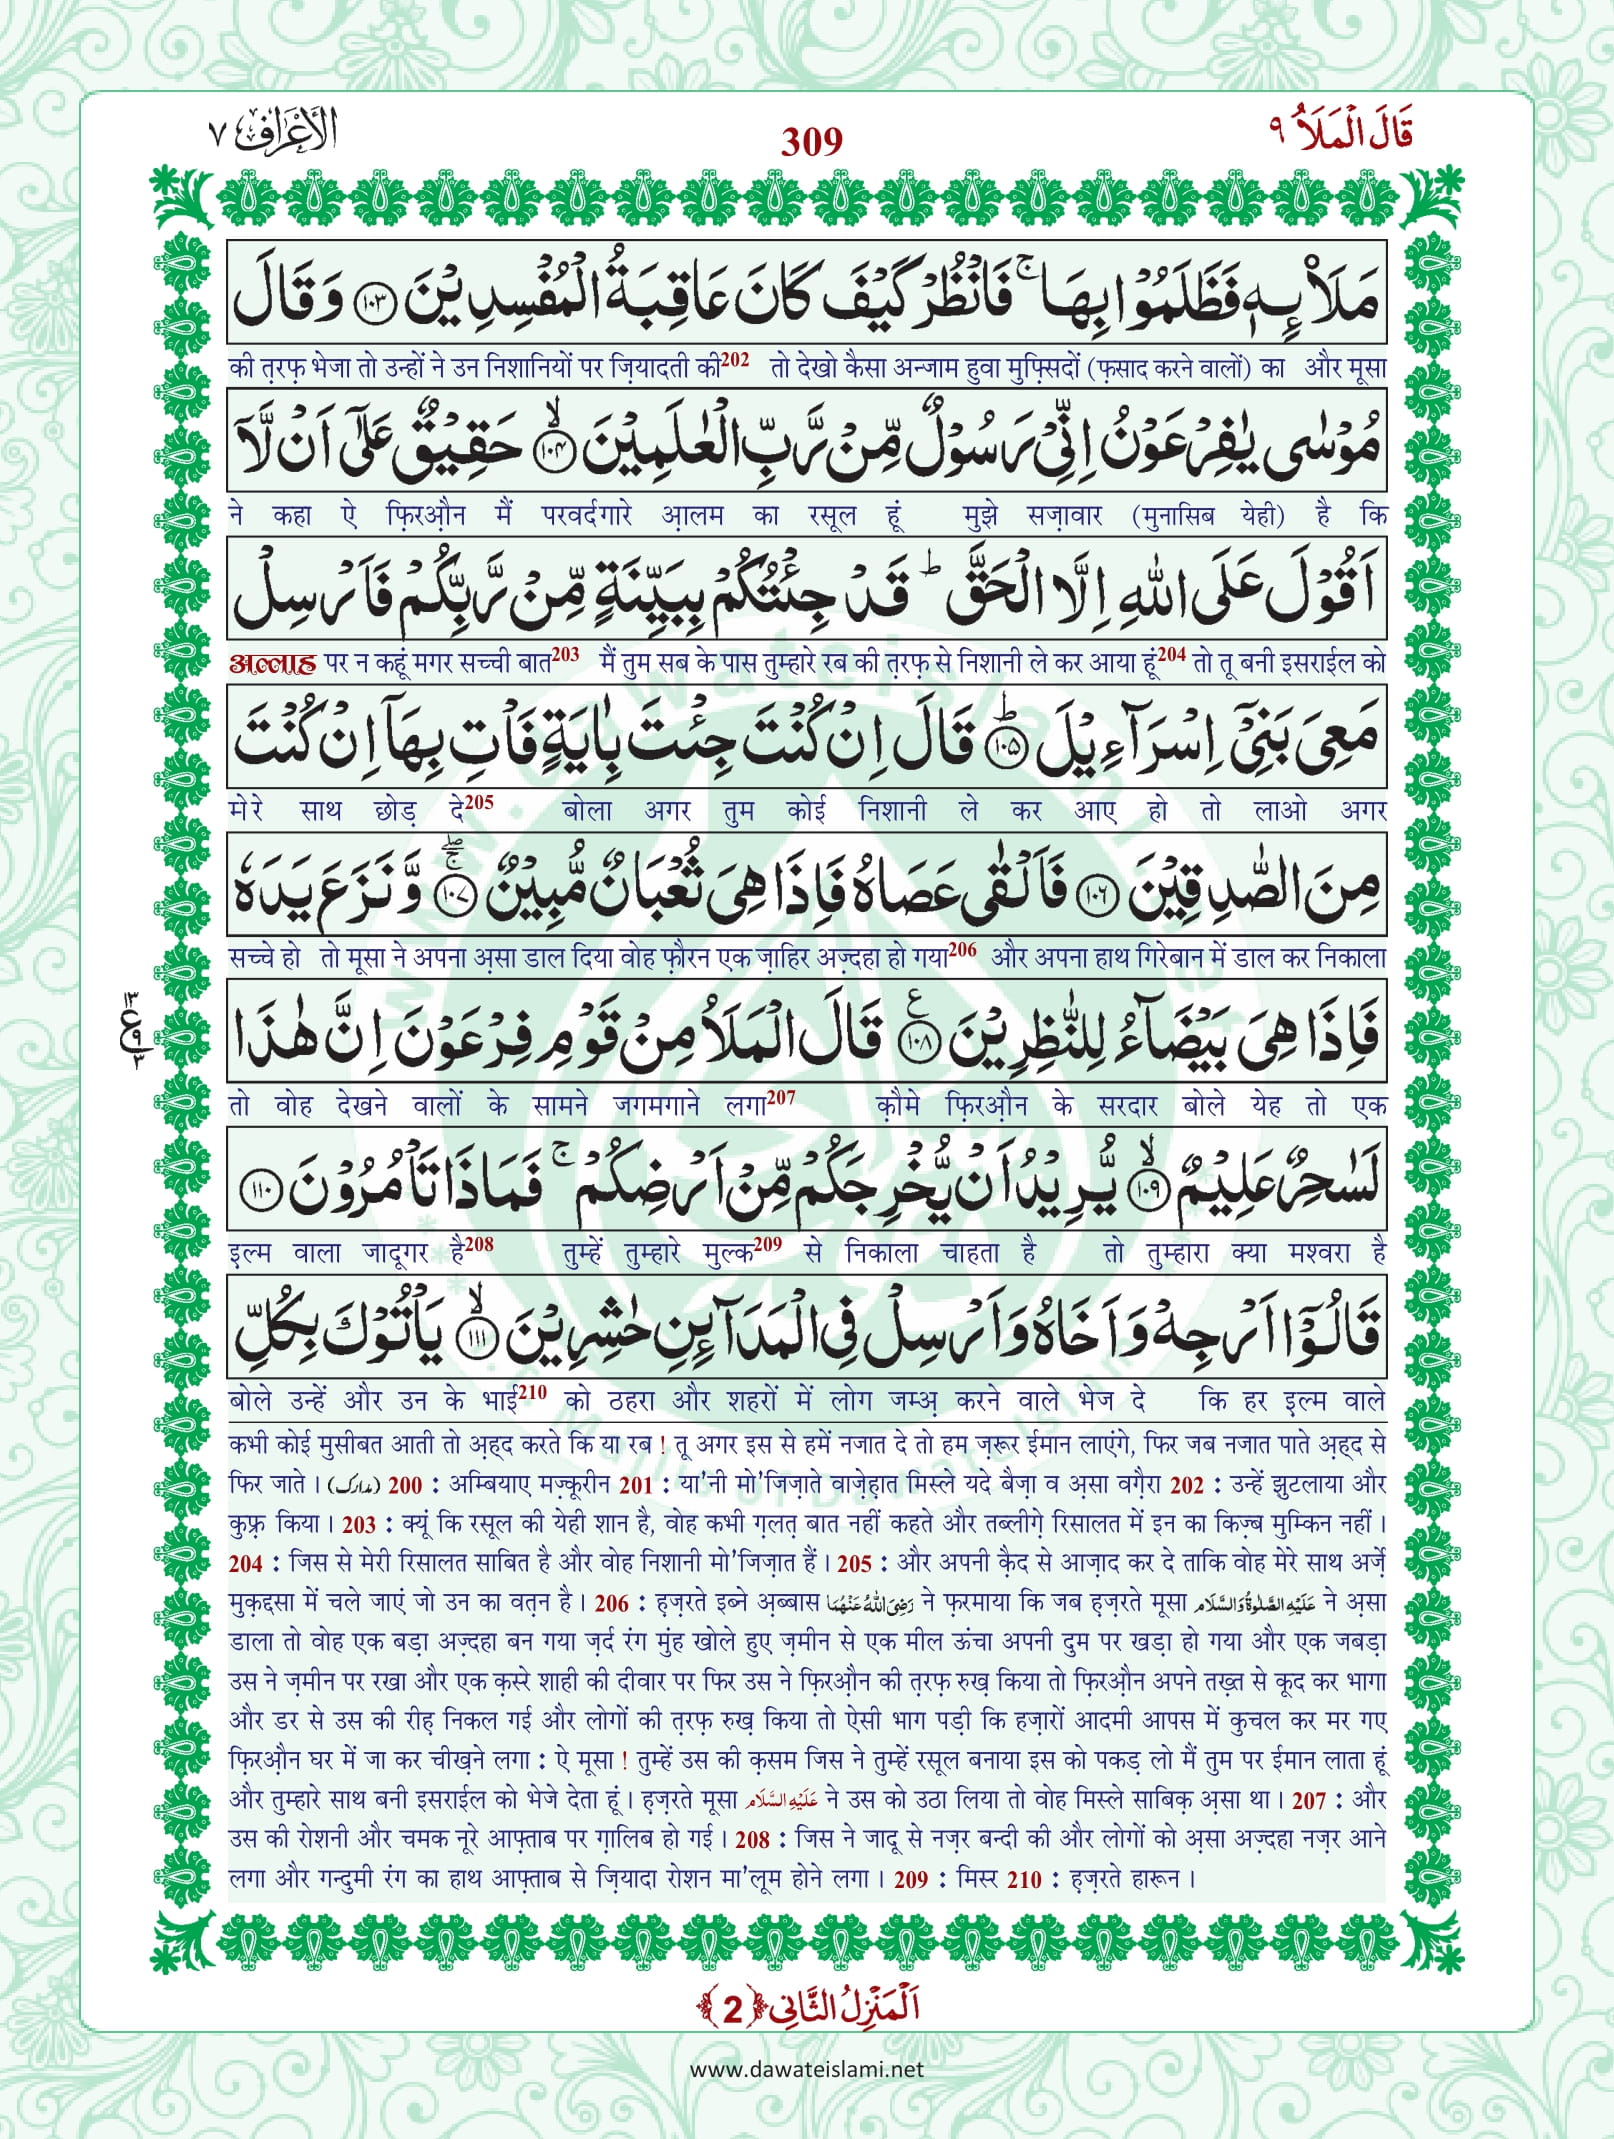 قَالَ الْمَلَاُ ٩
309
الْاَعْرَاف ٧
مَلَا۠ئِهٖ فَظَلَمُوْا بِهَا ۚ فَانْظُرْ كَيْفَ كَانَ عَاقِبَةُ الْمُفْسِدِيْنَ ﴿١٠٣﴾ وَ قَالَ
की त़रफ़ भेजा तो उन्हों ने उन निशानियों पर ज़ियादती की202 तो देखो कैसा अन्जाम हुवा मुफ़्सिदों (फ़साद करने वालों) का और मूसा
مُوْسٰى يٰفِرْعَوْنُ اِنِّیْ رَسُوْلٌ مِّنْ رَّبِّ الْعٰلَمِيْنَ ﴿١٠٤﴾ۙ حَقِيْقٌ عَلٰۤى اَنْ لَّاۤ
ने कहा ऐ फ़िरऔ़न मैं परवर्दगारे आ़लम का रसूल हूं मुझे सज़ावार (मुनासिब येही) है कि
اَقُوْلَ عَلَى اللّٰهِ اِلَّا الْحَقَّ ؕ قَدْ جِئْتُكُمْ بِبَيِّنَةٍ مِّنْ رَّبِّكُمْ فَاَرْسِلْ
अल्लाह पर न कहूं मगर सच्ची बात203 मैं तुम सब के पास तुम्हारे रब की त़रफ़ से निशानी ले कर आया हूं204 तो तू बनी इसराईल को
مَعِیَ بَنِیْۤ اِسْرَآءِيْلَ ﴿١٠٥﴾ؕ قَالَ اِنْ كُنْتَ جِئْتَ بِاٰيَةٍ فَاْتِ بِهَاۤ اِنْ كُنْتَ
मेरे साथ छोड़ दे205 बोला अगर तुम कोई निशानी ले कर आए हो तो लाओ अगर
مِنَ الصّٰدِقِيْنَ ﴿١٠٦﴾ فَاَلْقٰى عَصَاهُ فَاِذَا هِیَ ثُعْبَانٌ مُّبِيْنٌ ﴿١٠٧﴾ۚۖ وَّ نَزَعَ يَدَهٗ
सच्चे हो तो मूसा ने अपना अ़सा डाल दिया वोह फ़ौरन एक ज़ाहिर अज़्दहा हो गया206 और अपना हाथ गिरेबान में डाल कर निकाला
فَاِذَا هِیَ بَيْضَآءُ لِلنّٰظِرِيْنَ ﴿١٠٨﴾ ع قَالَ الْمَلَاُ مِنْ قَوْمِ فِرْعَوْنَ اِنَّ هٰذَا
١٣ ع ٩ ٣
तो वोह देखने वालों के सामने जगमगाने लगा207 क़ौमे फ़िरऔ़न के सरदार बोले येह तो एक
لَسٰحِرٌ عَلِيْمٌ ﴿١٠٩﴾ۙ يُّرِيْدُ اَنْ يُّخْرِجَكُمْ مِّنْ اَرْضِكُمْ ۚ فَمَا ذَا تَاْمُرُوْنَ ﴿١١٠﴾
इल्म वाला जादूगर है208 तुम्हें तुम्हारे मुल्क209 से निकाला चाहता है तो तुम्हारा क्या मश्वरा है
قَالُوْۤا اَرْجِهْ وَ اَخَاهُ وَ اَرْسِلْ فِی الْمَدَآئِنِ حٰشِرِيْنَ ﴿١١١﴾ۙ يَاْتُوْكَ بِكُلِّ
बोले उन्हें और उन के भाई210 को ठहरा और शहरों में लोग जम्अ़ करने वाले भेज दे कि हर इल्म वाले
कभी कोई मुसीबत आती तो अ़ह्द करते कि या रब ! तू अगर इस से हमें नजात दे तो हम ज़रूर ईमान लाएंगे, फिर जब नजात पाते अ़ह्द से
फिर जाते । (مدارک) 200 : अम्बियाए मज़्कूरीन 201 : या'नी मो'जिज़ाते वाज़ेह़ात मिस्ले यदे बैज़ा व अ़सा वग़ैरा 202 : उन्हें झुटलाया और
कुफ़्र किया । 203 : क्यूं कि रसूल की येही शान है, वोह कभी ग़लत़ बात नहीं कहते और तब्लीग़े रिसालत में इन का किज़्ब मुम्किन नहीं ।
204 : जिस से मेरी रिसालत साबित है और वोह निशानी मो'जिज़ात हैं । 205 : और अपनी क़ैद से आज़ाद कर दे ताकि वोह मेरे साथ अर्ज़े
मुक़द्दसा में चले जाएं जो उन का वत़न है । 206 : ह़ज़रते इब्ने अ़ब्बास رَضِیَ اللّٰهُ عَنْهُمَا ने फ़रमाया कि जब ह़ज़रते मूसा عَلَيْهِ الصَّلٰوةُ وَالسَّلَام ने अ़सा
डाला तो वोह एक बड़ा अज़्दहा बन गया ज़र्द रंग मुंह खोले हुए ज़मीन से एक मील ऊंचा अपनी दुम पर खड़ा हो गया और एक जबड़ा
उस ने ज़मीन पर रखा और एक क़स्रे शाही की दीवार पर फिर उस ने फ़िरऔ़न की त़रफ़ रुख़ किया तो फ़िरऔ़न अपने तख़्त से कूद कर भागा
और डर से उस की रीह़ निकल गई और लोगों की त़रफ़ रुख़ किया तो ऐसी भाग पड़ी कि हज़ारों आदमी आपस में कुचल कर मर गए
फ़िरऔ़न घर में जा कर चीख़ने लगा : ऐ मूसा ! तुम्हें उस की क़सम जिस ने तुम्हें रसूल बनाया इस को पकड़ लो मैं तुम पर ईमान लाता हूं
और तुम्हारे साथ बनी इसराईल को भेजे देता हूं । ह़ज़रते मूसा عَلَيْهِ السَّلَام ने उस को उठा लिया तो वोह मिस्ले साबिक़ अ़सा था । 207 : और
उस की रोशनी और चमक नूरे आफ़्ताब पर ग़ालिब हो गई । 208 : जिस ने जादू से नज़र बन्दी की और लोगों को अ़सा अज़्दहा नज़र आने
लगा और गन्दुमी रंग का हाथ आफ़्ताब से ज़ियादा रोशन मा'लूम होने लगा । 209 : मिस्र 210 : ह़ज़रते हारून ।
اَلْمَنْزِلُ الثَّانِی ﴿2﴾
www.dawateislami.net